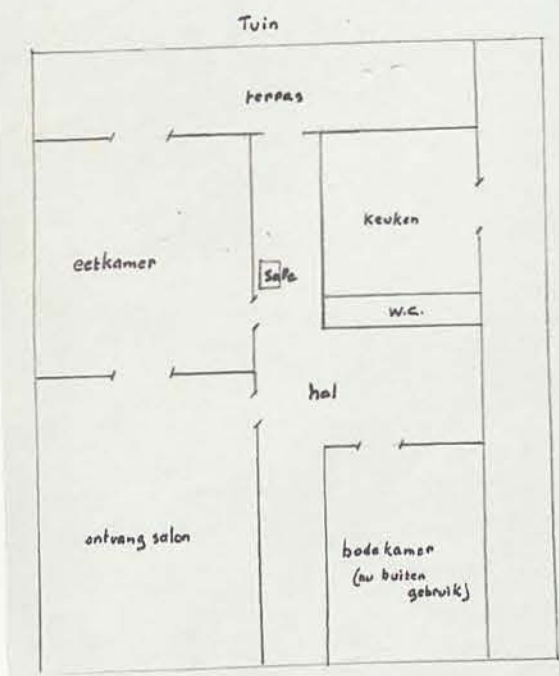 Tuin
terras
keuken
eetkamer
Safe
w.c.
hal
ontvang salon
bode kamer
(nu buiten
gebruik)